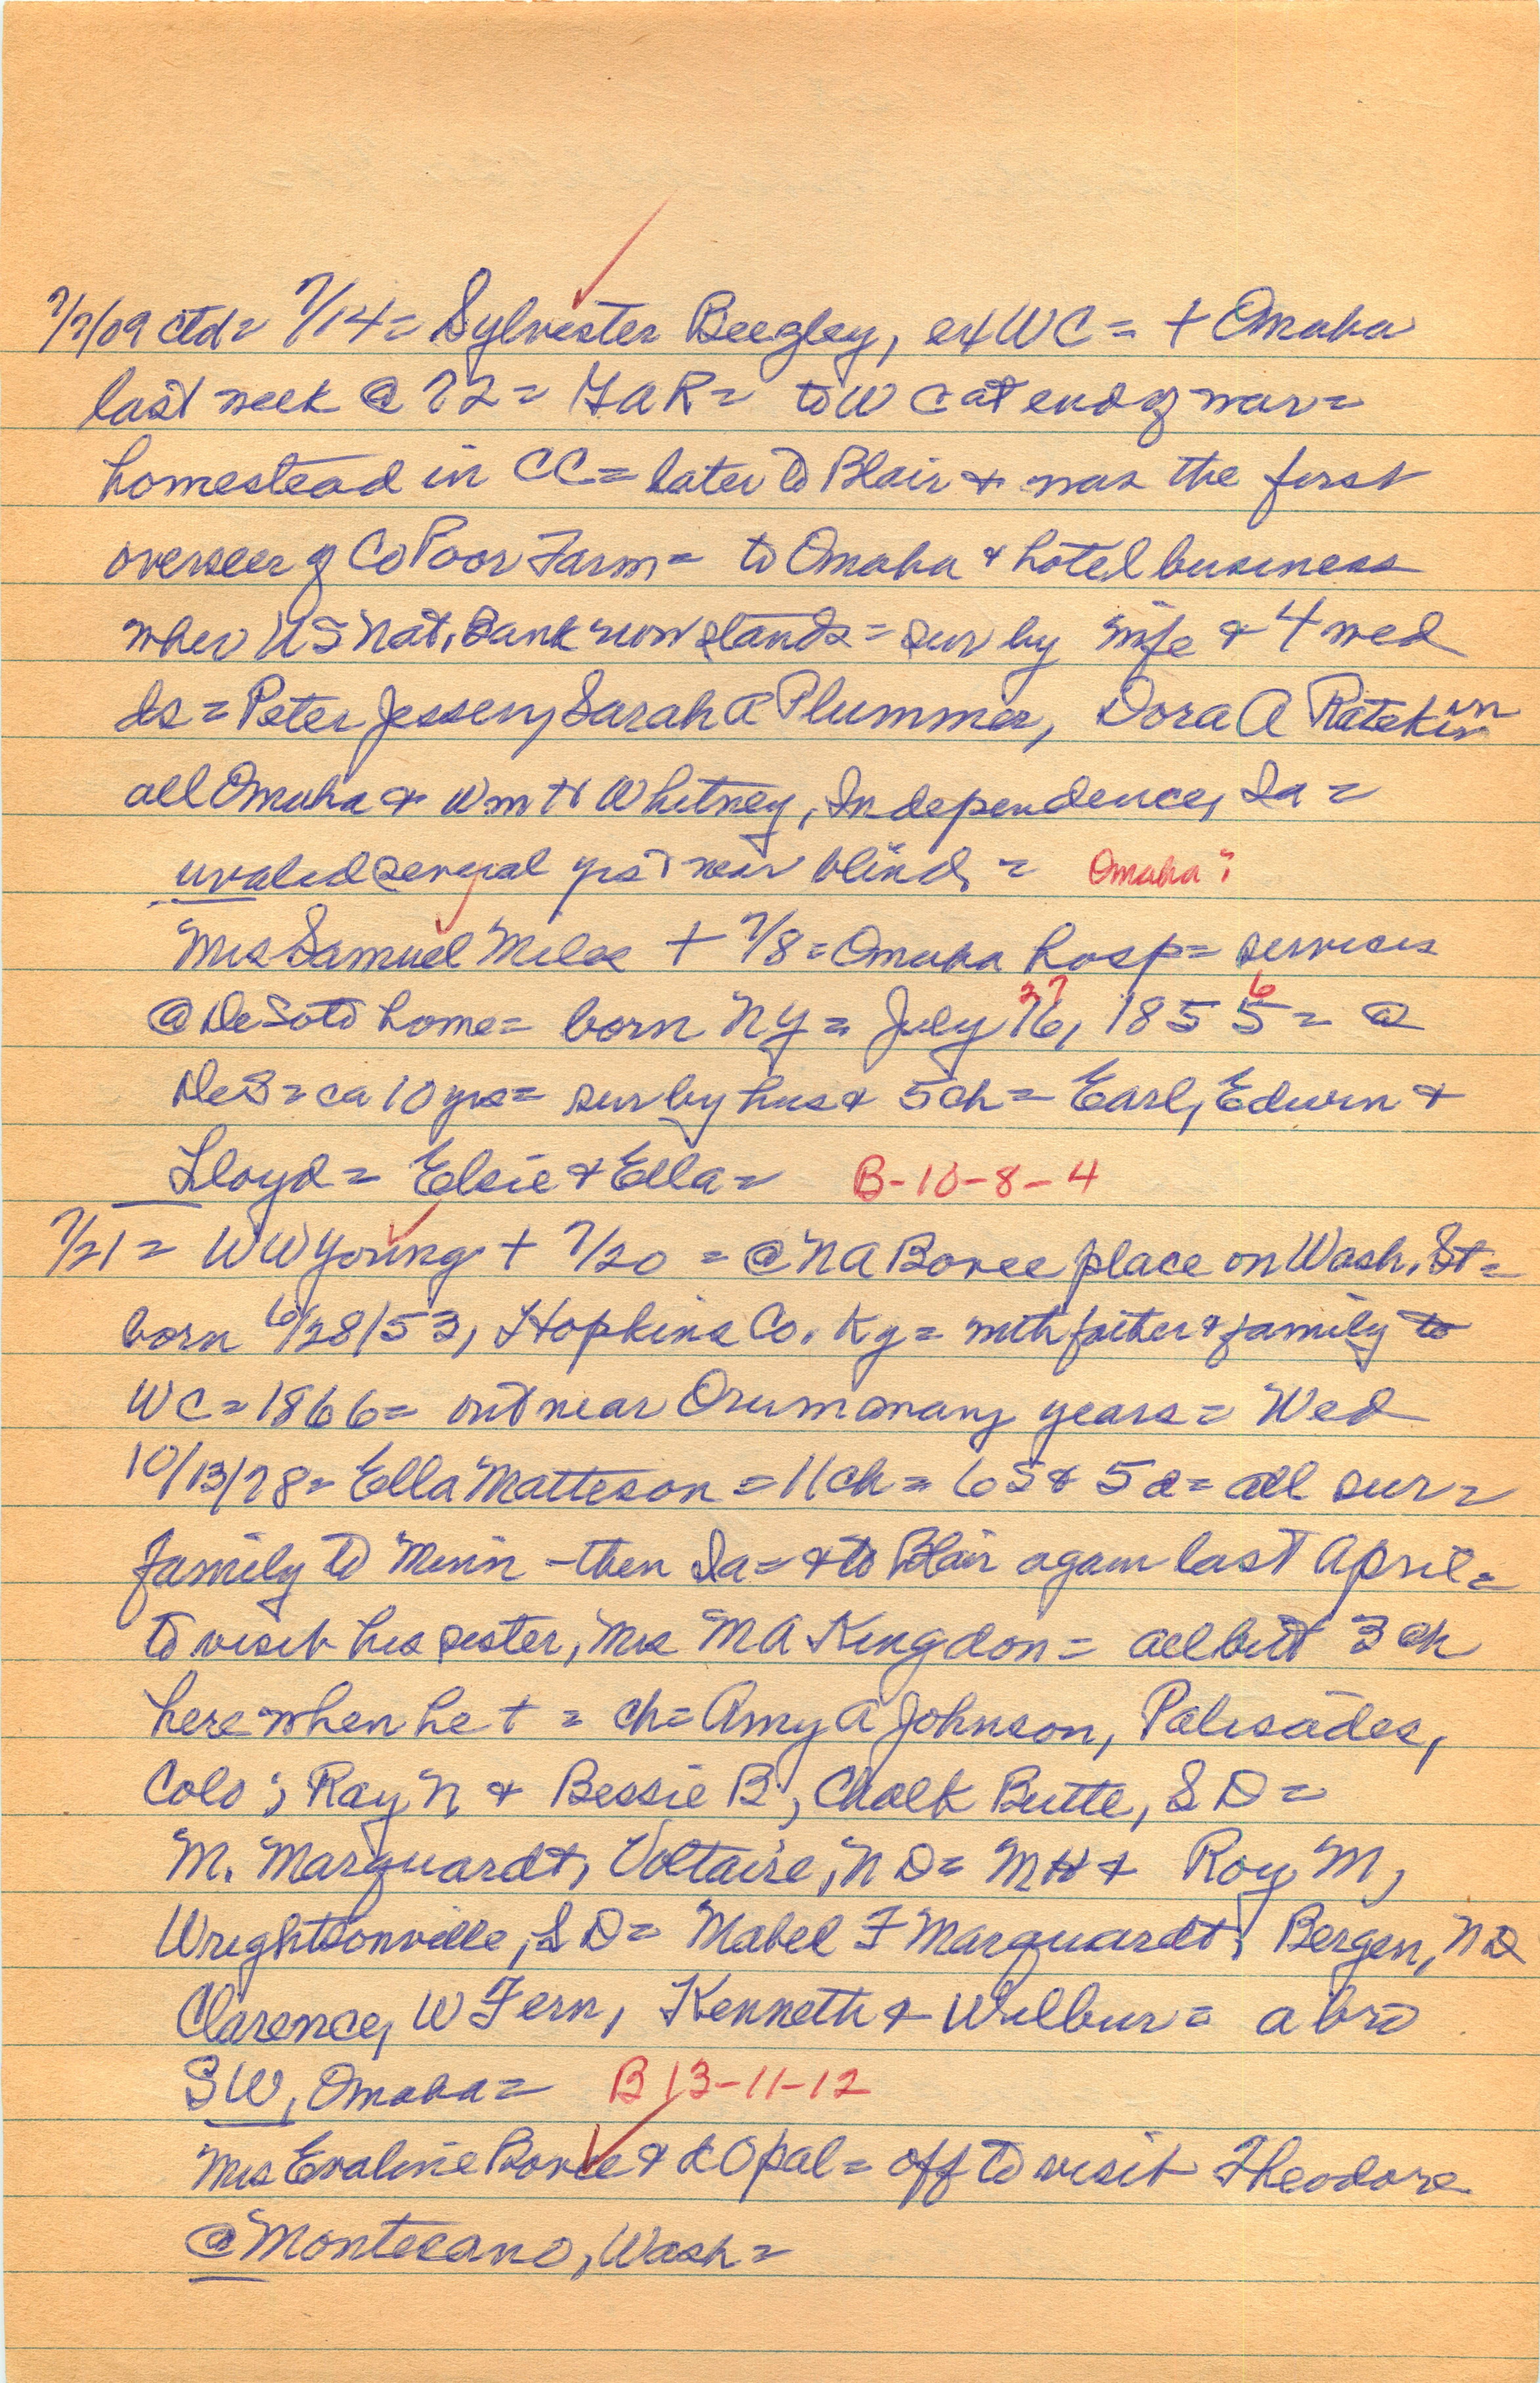 7/7/09 ctd = 7/14 = Sylvester Beegley, exWC = + Omaha
last week @ 72 = GAR = to WC at end of war =
homestead in CC = later to Blair & was the first
overseer of Co Poor Farm = to Omaha & hotel business
wher US Nat. Bank now stands = sur by wife & 4 wed
ds = Peter Jessen, Sarah A Plummer, Dora A Ratekin
all Omaha & Wm H Whitney, Independence, Ia =
several yrs near blind = Omaha ?
Mrs Samuel Miles + 7/8 = Omaha hosp = services
@ DeSoto home = born NY = July 16, 1855 = @
27 6
DeS = ca 10 yrs = sur by hus & 5 ch = Earl, Edwin &
Lloyd = Elsie & Ella = B-10-8-4
7/21 = WW Young + 7/20 = @ NA Boree place on Wash. St =
born 6/28/53, Hopkins Co. Ky = with father & family to
WC = 1866 = out near Orum many years = Wed
10/13/78 = Ella Matteson = 11 ch = 6 S & 5 d = all sur =
family to Minn - then Ia = & to Blair again last April =
to visit his sister, Mrs MA Kingdon = all but 3 ch
here when he + = ch = Amy A Johnson, Palisades,
Colo ; Ray N & Bessie B, Chalk Butte, S D =
M. Marquardt, Voltaire, N D = MH & Roy M,
Wrightsonville, S D = Mabel F Marquardt, Bergen, N D
Clarence, W Fern, Kenneth & Wilbur = a bro
SW, Omaha = B 13-11-12
Mrs Evaline Boree & d Opal = off to visit Theodore
@ Montesano, Wash =